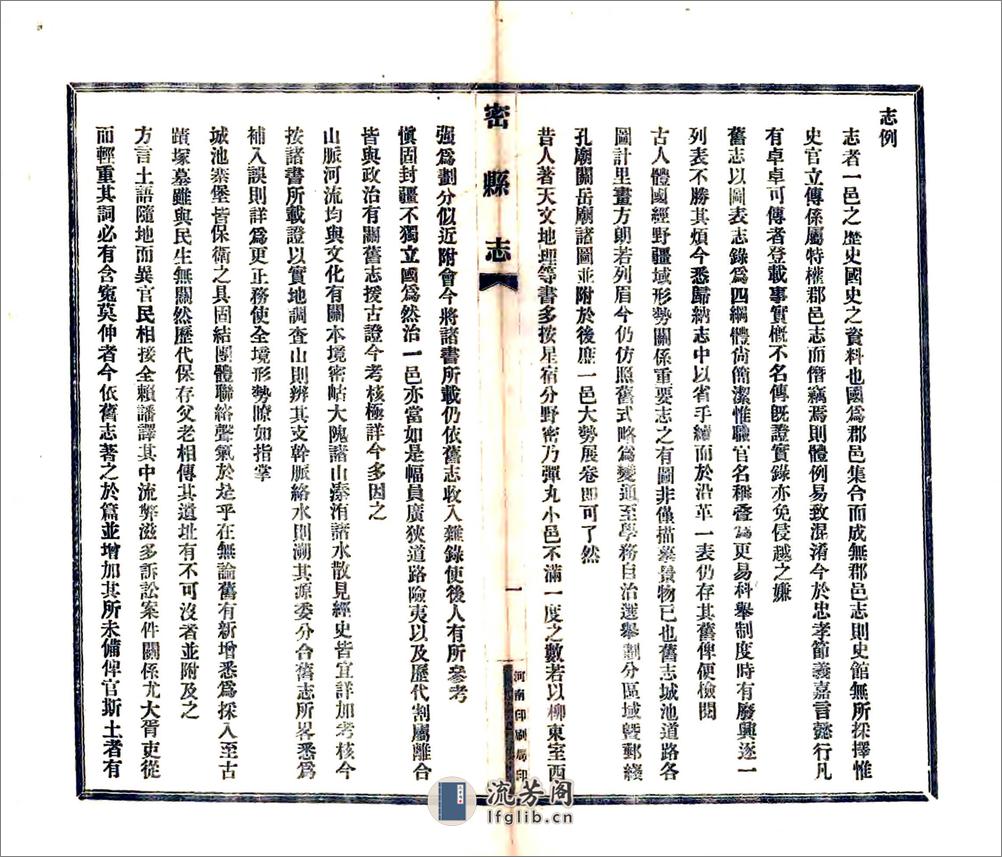 志例
志者一邑之歷史國史之資料也國爲郡邑集合而成無郡邑志則史館無所採擇惟
史官立傳係屬特權郡邑志而僭竊焉則體例易致混淆今於忠孝節義嘉言懿行凡
有卓卓可傳者登載事實概不名傳既證實錄亦免侵越之嫌
舊志以圖表志錄爲四綱體尚簡潔惟職官名稱叠爲更易科舉制度時有廢興逐一
列表不勝其煩今悉歸納志中以省手續而於沿革一表仍存其舊俾便檢閱
古人體國經野疆域形勢關係重要志之有圖非僅描摹景物已也舊志城池道路各
圖計里畫方朗若列眉今仍仿照舊式略爲變通至學務自治選舉劃分區域暨郵綫
孔廟關岳廟諸圖並附於後庶一邑大勢展卷即可了然
昔人著天文地理等書多按星宿分野密乃彈丸小邑不滿一度之數若以柳東室西
密縣志
一
河南印刷局印
強爲劃分似近附會今將諸書所載仍依舊志收入雜錄使後人有所參考
愼固封疆不獨立國爲然治一邑亦當如是幅員廣狹道路險夷以及歷代割屬離合
皆與政治有關舊志援古證今考核極詳今多因之
山脈河流均與文化有關本境密岵大隗諸山溱洧諸水散見經史皆宜詳加考核今
按諸書所載證以實地調查山則辨其支幹脈絡水則溯其源委分合舊志所畧悉爲
補入誤則詳爲更正務使全境形勢瞭如指掌
城池寨堡皆保衛之具固結團體聯絡聲氣於是乎在無論舊有新增悉爲採入至古
蹟塚墓雖與民生無關然歷代保存父老相傳其遺址有不可沒者並附及之
方言土語隨地而異官民相接全賴譒譯其中流弊滋多訴訟案件關係尤大胥吏從
而輕重其詞必有含寃莫伸者今依舊志著之於篇並增加其所未備俾官斯土者有
流芳阁
lfglib.cn